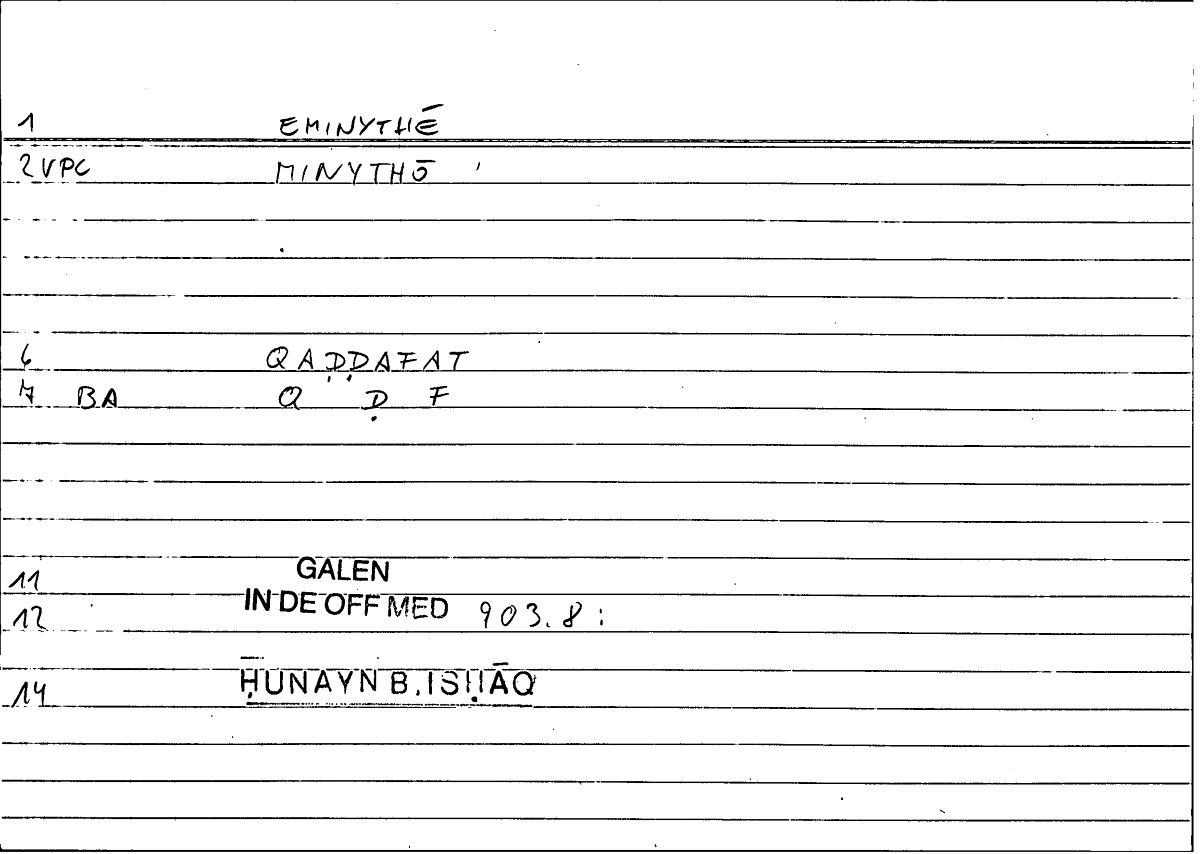 1 EMINYTHĒ
2 VPC MINYTHŌ
6 QAḌḌAFAT
7 BA Q Ḍ F
11 GALEN
12 IN DE OFF MED 903.8:
14 ḤUNAYN B. ISḤĀQ